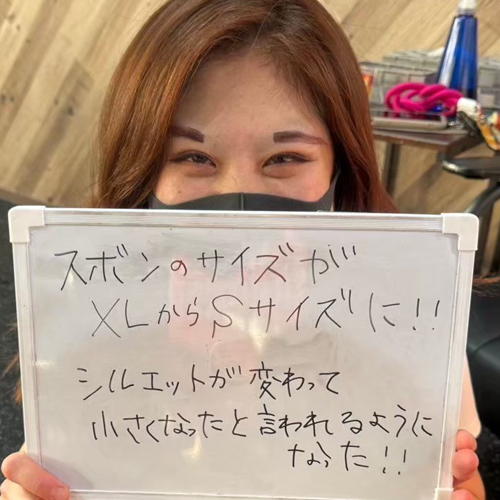 スボンのサイズが
XLからSサイズに!!
シルエットが変わって
小さくなったと言われるように
なった!!